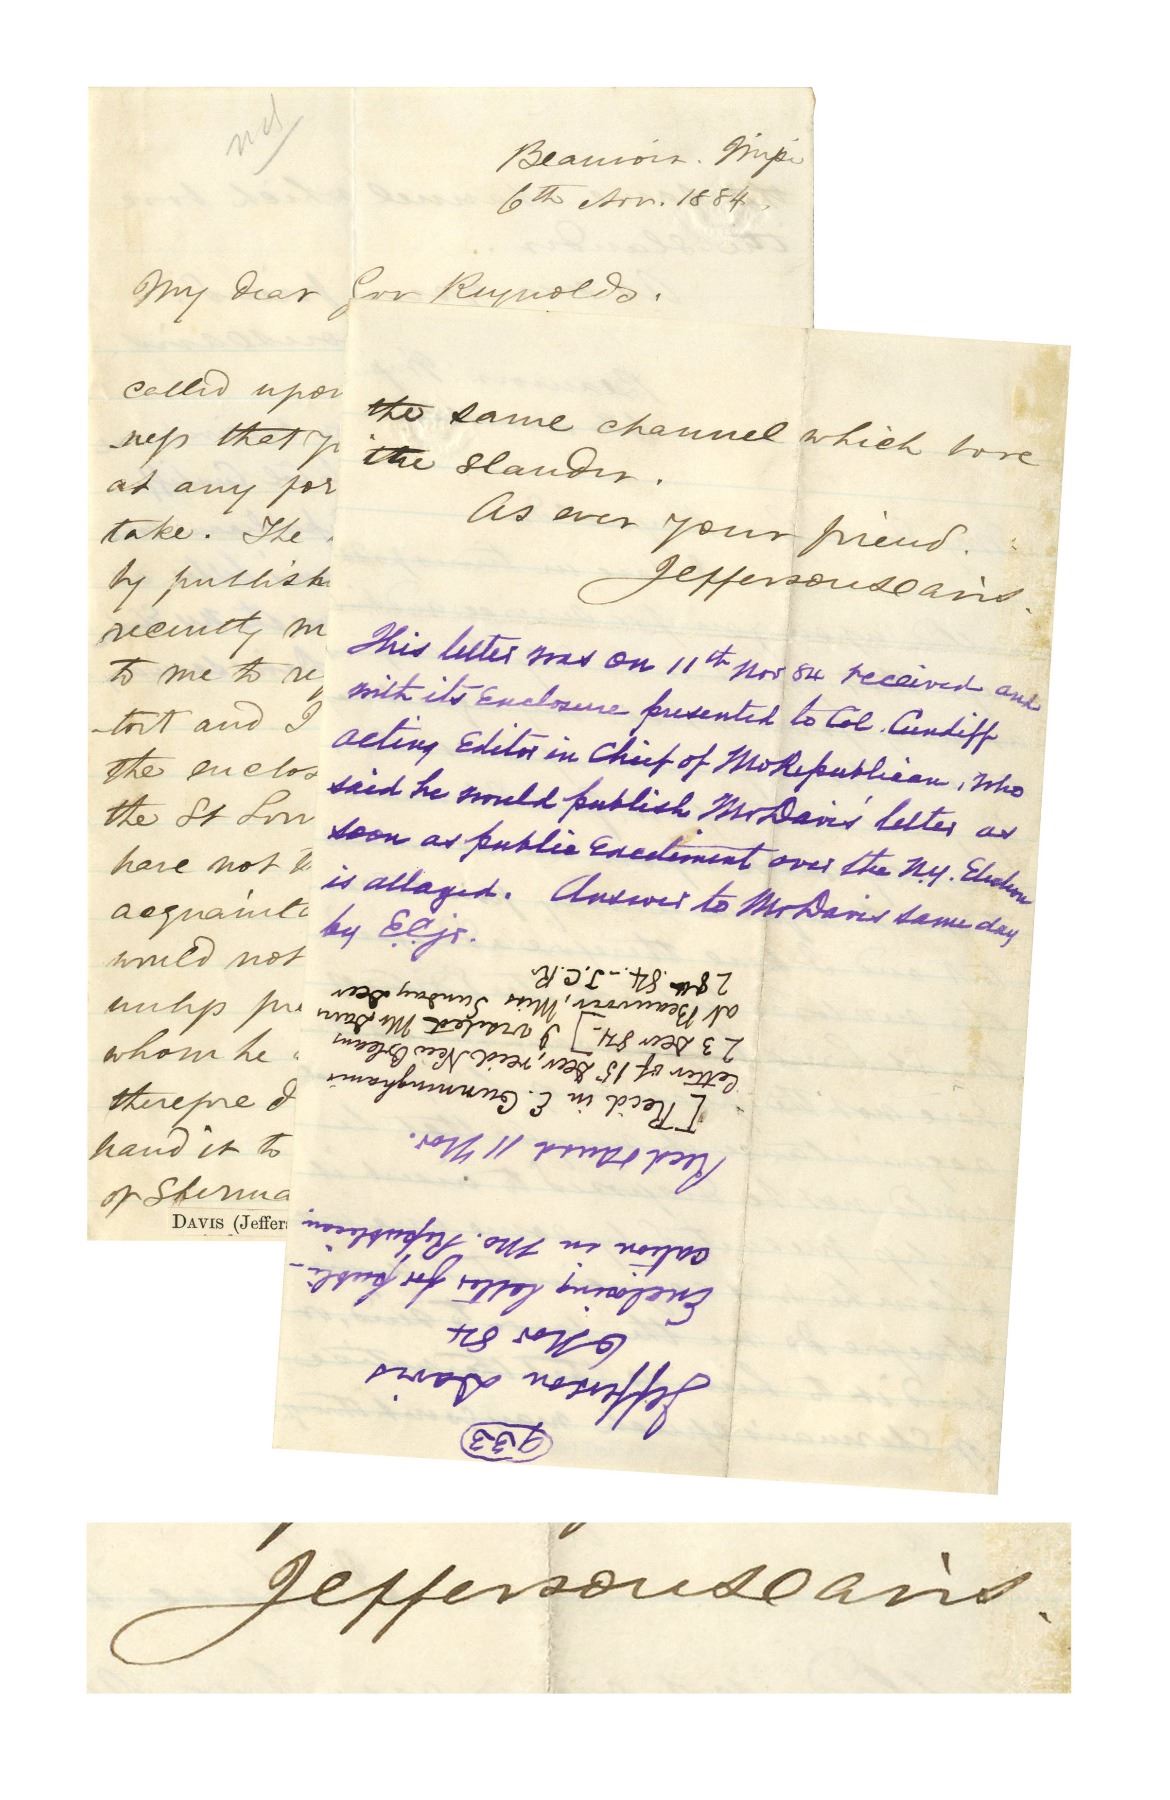 Beauvoir. Missi
6th Nov. 1884.
My dear Gov Reynolds.
called upon
-ness that y
at any for
take. The
by publish
recently m
to me to re
-tort and I
the enclos
the St Lou
have not
acquainta
would not
unless pre
whom he
therefore d
hand it to
of Sherma
DAVIS (Jeffers
the same channel which bore
the slander.
As ever your friend.
Jefferson Davis.
This letter was on 11th Nov 84 received and
with its Enclosure presented to Col. Cundiff
acting Editor in Chief of Mo Republican, who
said he would publish Mr Davis' letter as
soon as public Excitement over the N.Y. Election
is allayed. Answer to Mr Davis same day
by
933
Jefferson Davis
6 Nov 84
Enclosing letter for publi-
cation in Mo. Republican.
Recd & Ansd 11 Nov.
[Rec'd in E. Cunningham's
letter of 15 Decr, recd New Orleans
23 Decr 84.] I visited Mr Davis
at Beauvoir, Miss Sunday Decr
28th 84 - T.C.R.
Jefferson Davis.